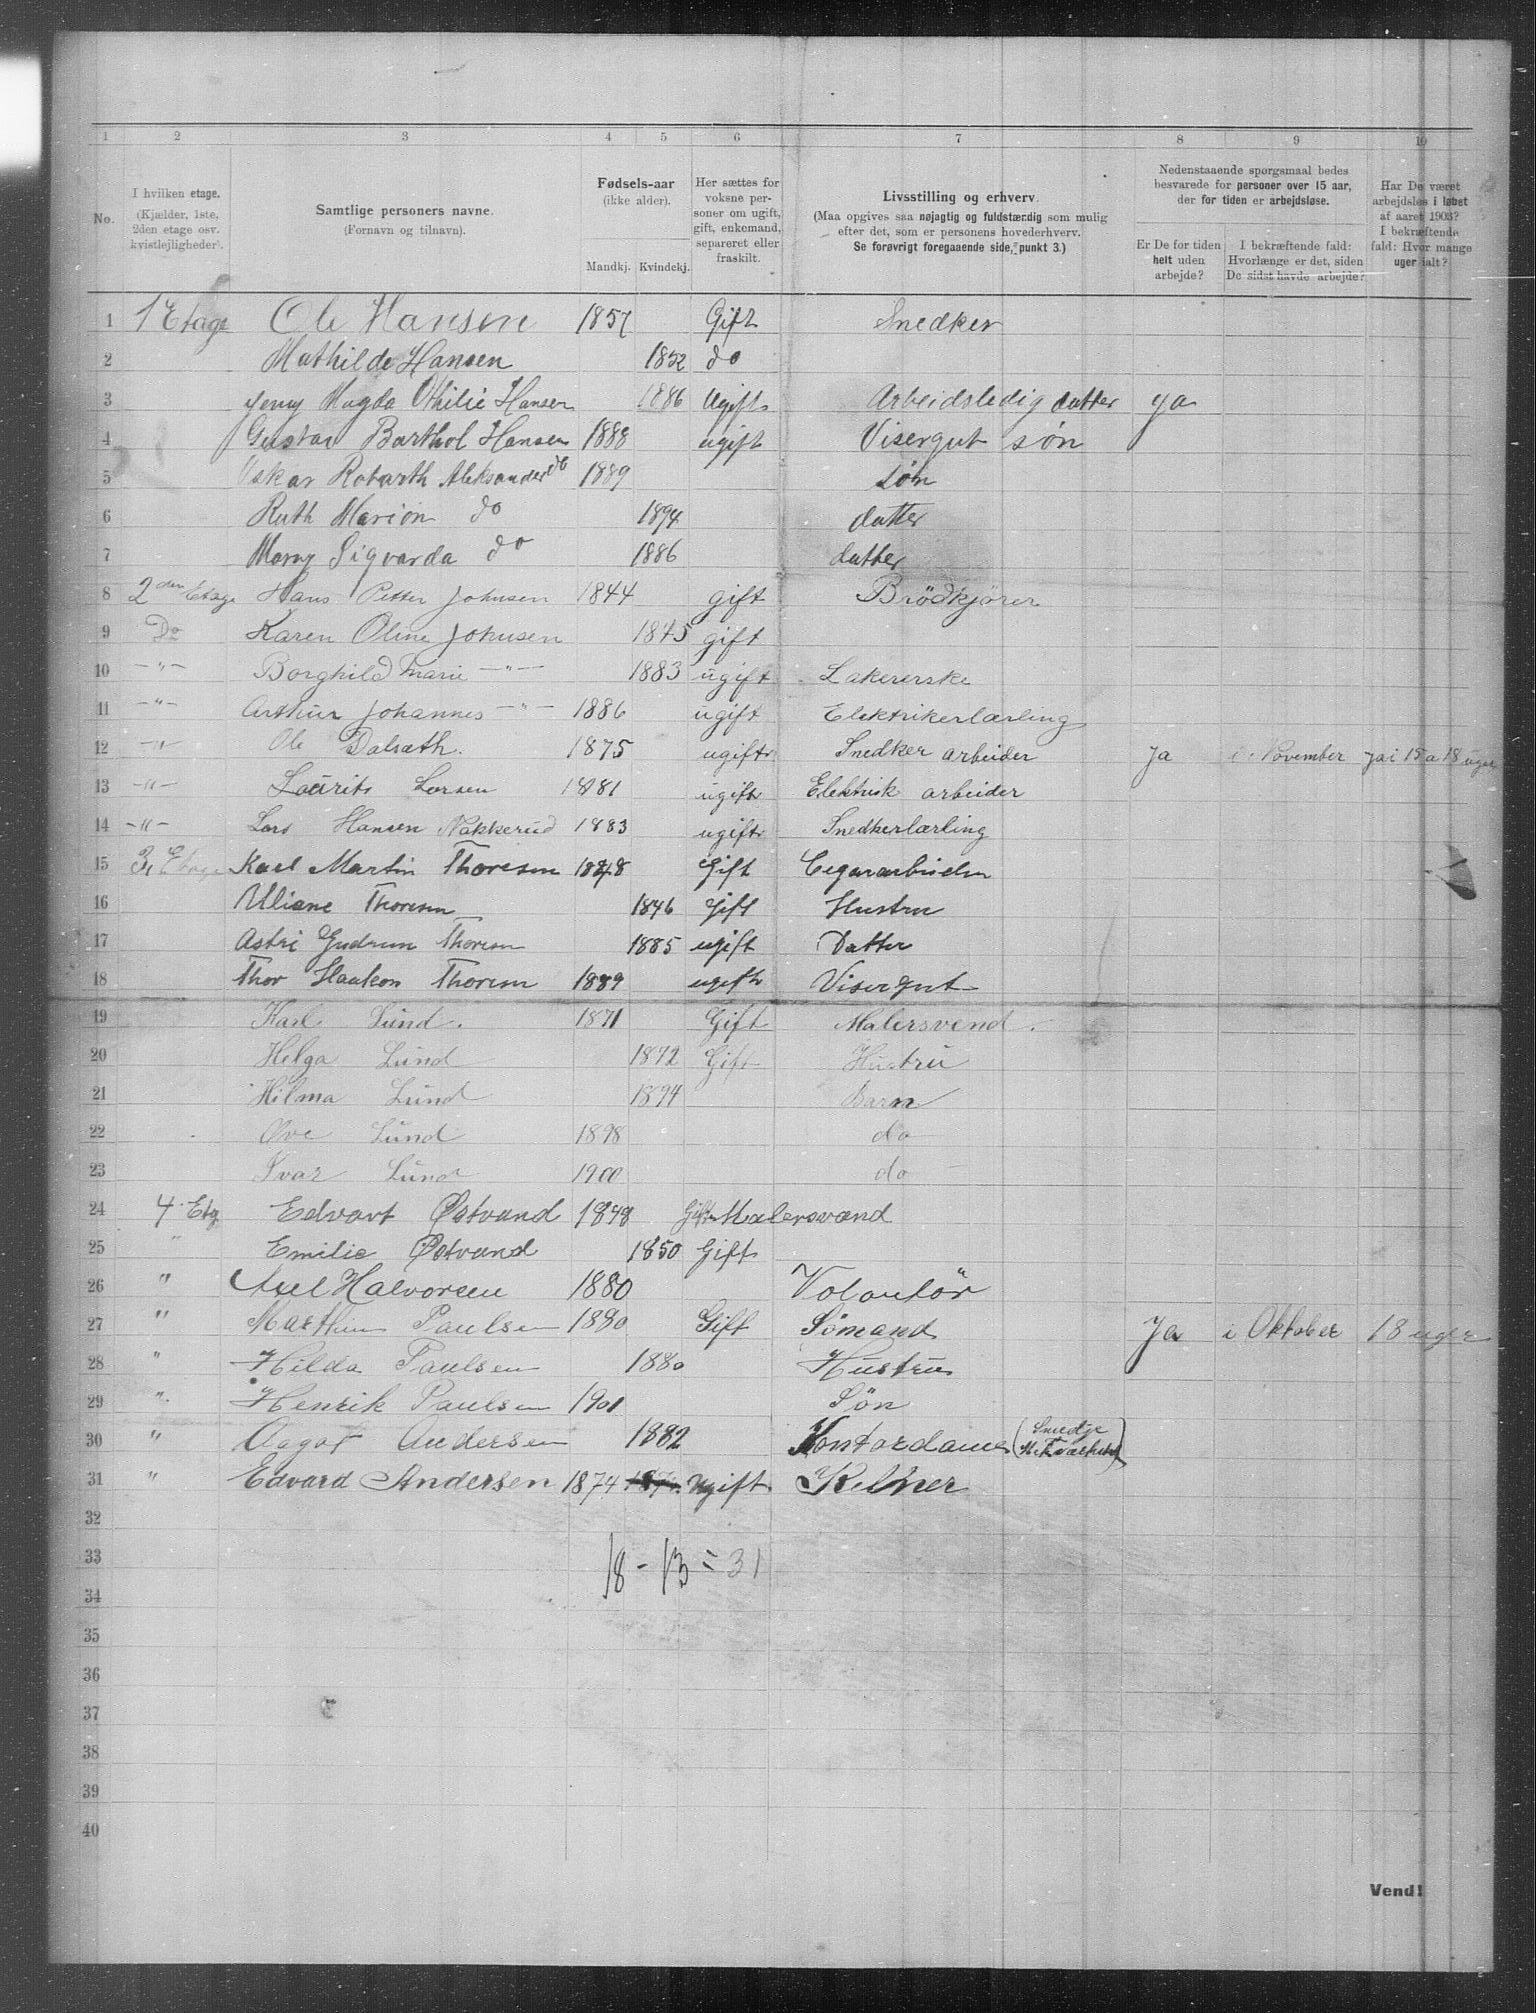 1 2 3 4 5 6 7 8 9 10
No.
I hvilken etage.
(Kjælder, 1ste,
2den etage osv.
kvistlejligheder).
Samtlige personers navne.
(Fornavn og tilnavn).
Fødsels-aar
(ikke alder).
Mandkj. Kvindekj.
Her sættes for
voksne per-
soner om ugift,
gift, enkemand,
separeret eller
fraskilt.
Livsstilling og erhverv.
(Maa opgives saa nøjagtig og fuldstærdig som mulig
efter det, som er personens hovederhverv.
Se forøvrigt foregaaende side, punkt 3.)
Nedenstaaende spørgsmaal bedes
besvarede for personer over 15 aar,
der for tiden er arbejdsløse.
Er De for tiden
helt uden
arbejde?
I bekræftende fald:
Hvorlænge er det, siden
De sidst havde arbejde?
Har De været
arbejdsløs i løbet
af aaret 1903?
I bekræftende
fald: Hvor mange
uger ialt?
1 1 Etage Ole Hansen 1857 Gift Snedker
2 Mathilde Hansen 1852 do
3 Jenny Magda Othilie Hansen 1886 Ugift Arbeidsledig datter ja
4 Gustav Barthol Hansen 1888 ugift Visergut søn
5 Oskar Robarth Aleksander do 1889 søn
6 Ruth Marion do 1894 datter
7 Marny Sigvarda do 1886 datter
8 2den Etage Hans Petter Johnsen 1844 gift Brödkjører
9 Do Karen Oline Johnsen 1845 gift
10 -"- Borghild Marie -"- 1883 ugift Lakererske
11 -"- Arthur Johannes -"- 1886 ugift Elektrikerlærling
12 -"- Ole Dalsæth. 1875 ugift Snedker arbeider Ja i November ja i 15 a 18 uger
13 -"- Laurits Larsen 1881 ugift Elektrisk arbeider
14 -"- Lars Hansen Nakkerud 1883 ugift Snedkerlærling
15 3. Etage Karl Martin Thoresen 1848 Gift Cigararbeider
16 Uliane Thoresen 1846 Gift Hustru
17 Astri Gudrun Thoresen 1885 ugift Datter
18 Thor Haakon Thoresen 1889 ugift Visergut
19 Karl Lund. 1871 Gift Malersvend.
20 Helga Lund 1872 Gift Hustru
21 Hilma Lund 1894 Barn
22 Ove Lund 1898 do
23 Ivar Lund 1900 do
24 4. Etg Edvart Østvund 1848 Gift Malersvænd
25 " Emilie Østvund 1850 Gift
26 " Axel Halvorsen 1880 Volontör
27 " Marthin Paulsen 1880 Gift Sømand Ja i Oktober 18 uger
28 " Hilda Paulsen 1880 Hustru
29 " Henrik Paulsen 1901 Søn
30 " Aagot Andersen 1882 Kontordame (Smedje
31 " Edvard Andersen 1874 Ugift Kelner
32
33 18 - 13 = 31
34
35
36
37
38
39
40
Vend!